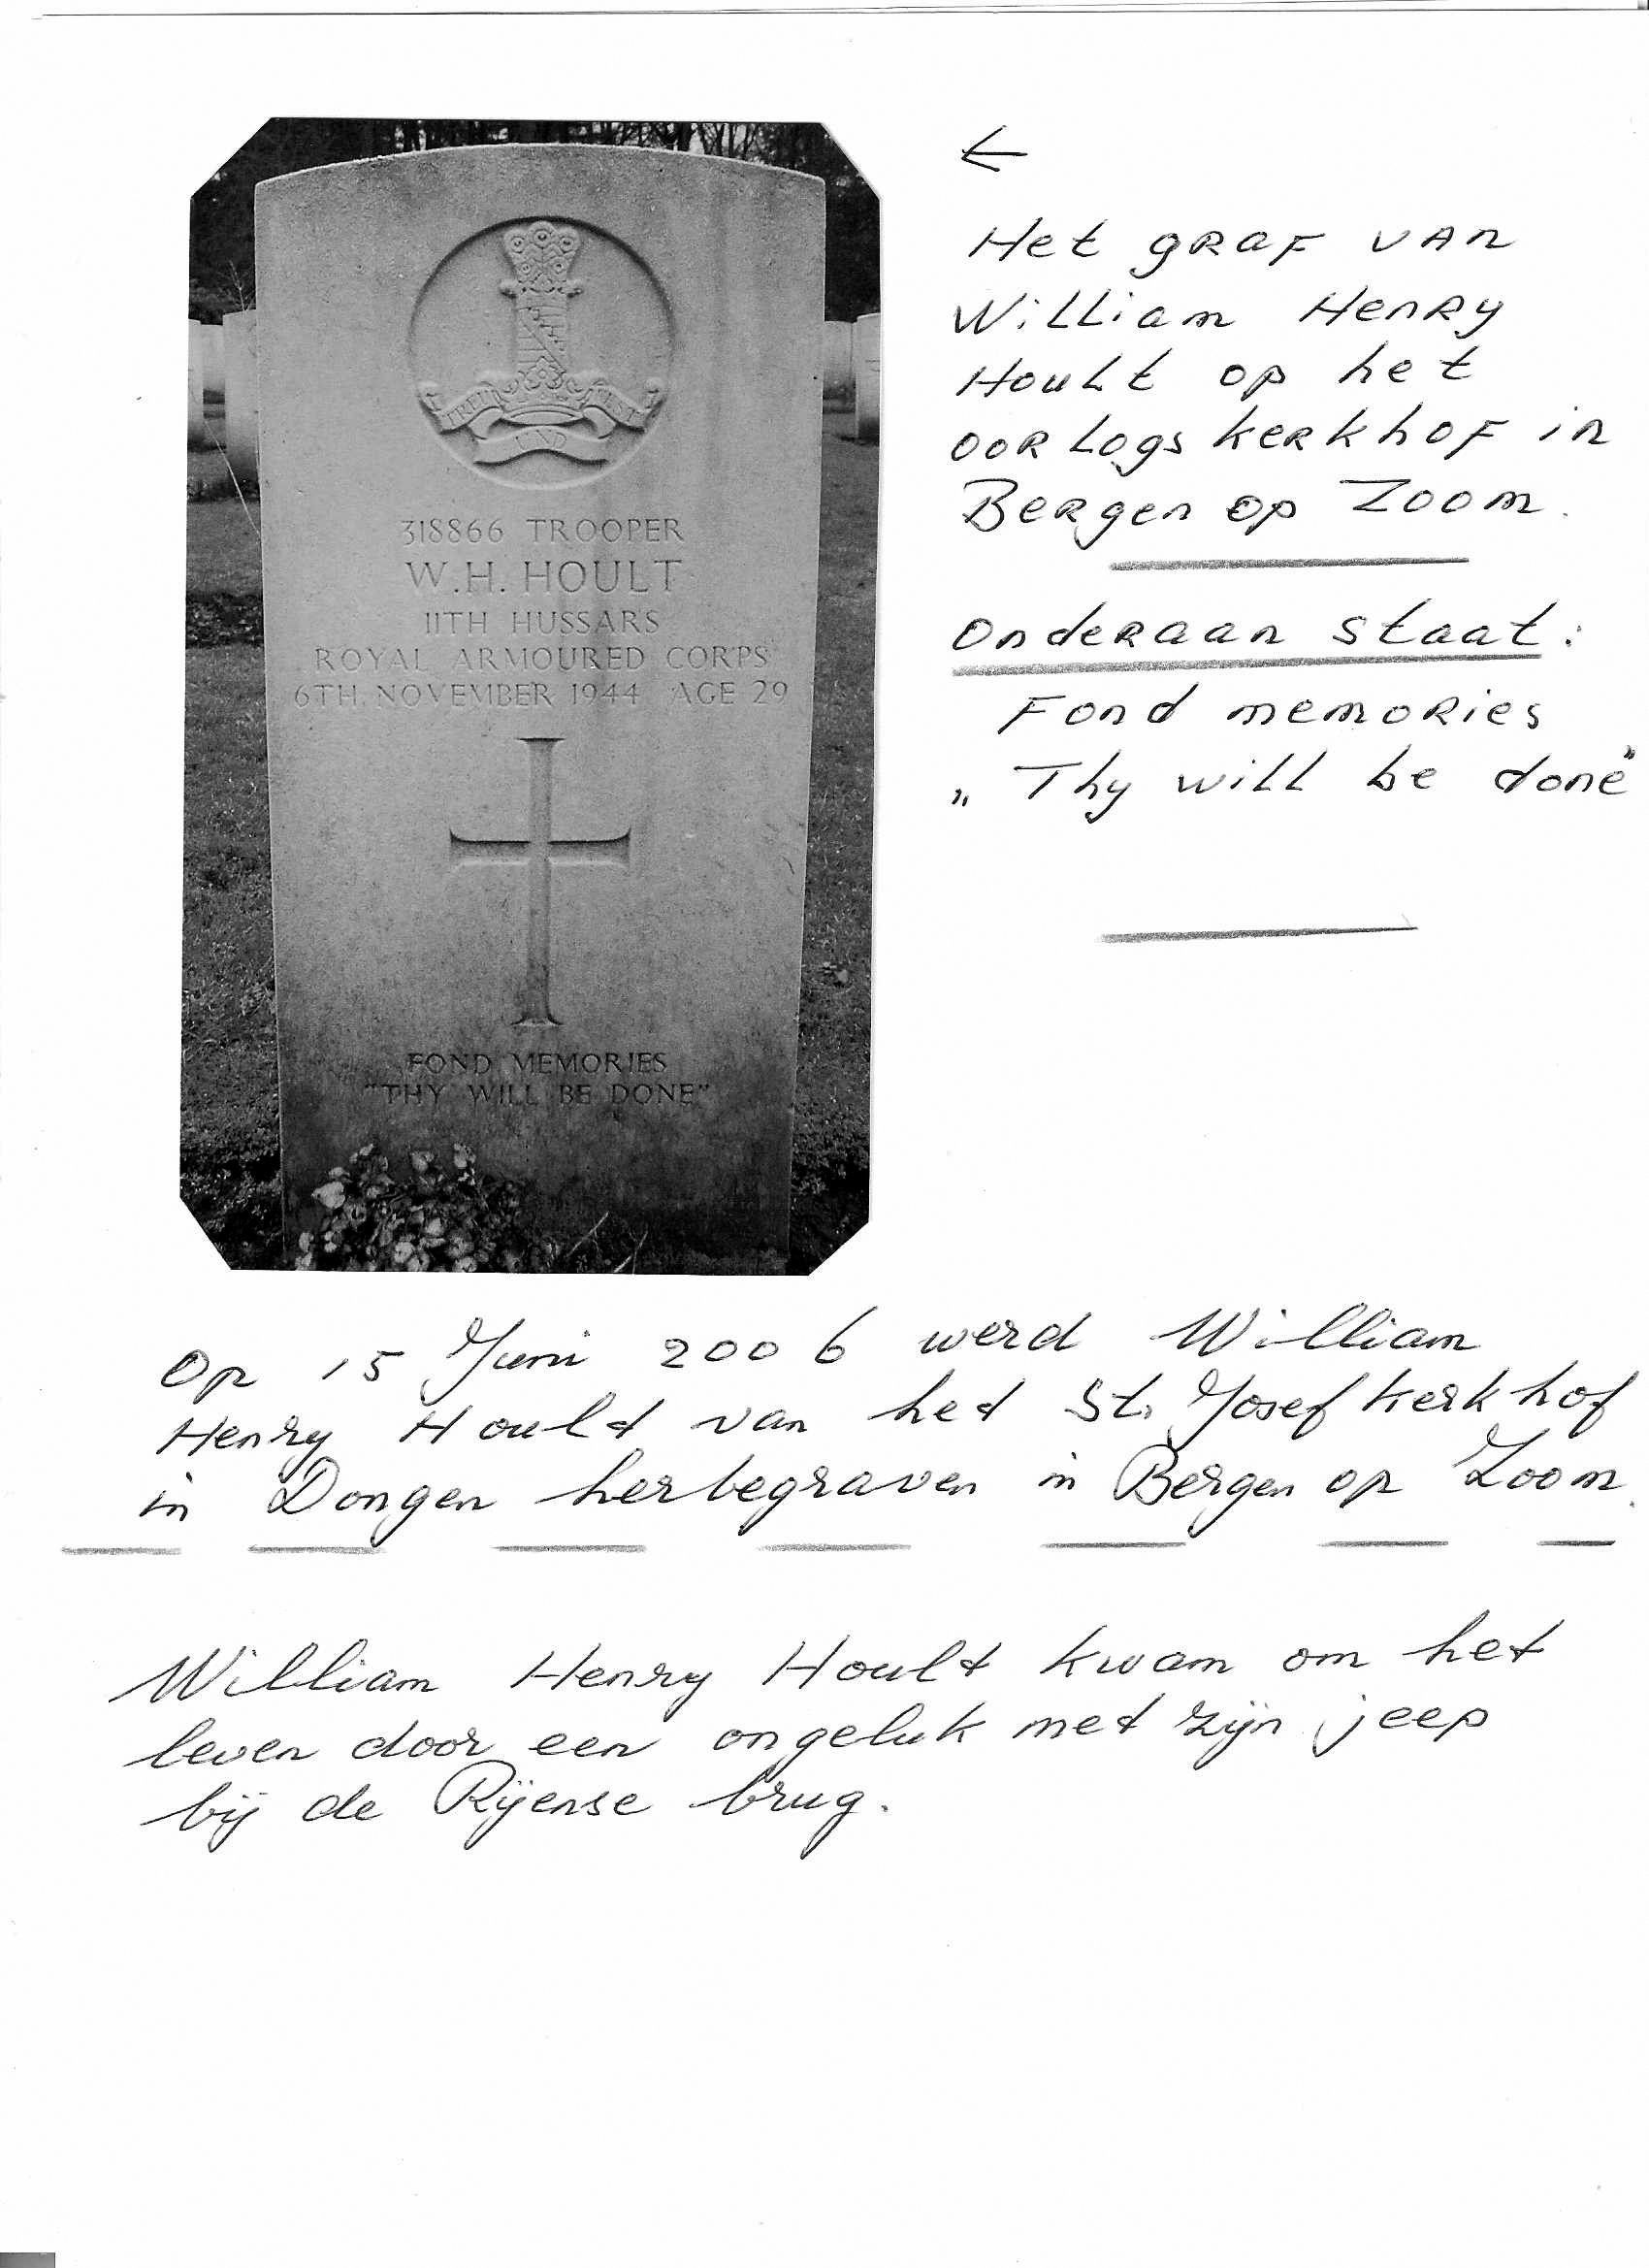 TREU
UND
FEST
318866 TROOPER
W.H. HOULT
11TH HUSSARS
ROYAL ARMOURED CORPS
6TH. NOVEMBER 1944 AGE 29
FOND MEMORIES
"THY WILL BE DONE"
←
Het graf van
William Henry
Hoult op het
oorlogskerkhof in
Bergen op Zoom.
Onderaan staat:
Fond memories
„Thy will be done"
Op 15 Juni 2006 werd William
Henry Hoult van het St. Josef kerkhof
in Dongen herbegraven in Bergen op Zoom.
William Henry Hoult kwam om het
leven door een ongeluk met zijn jeep
bij de Rijense brug.